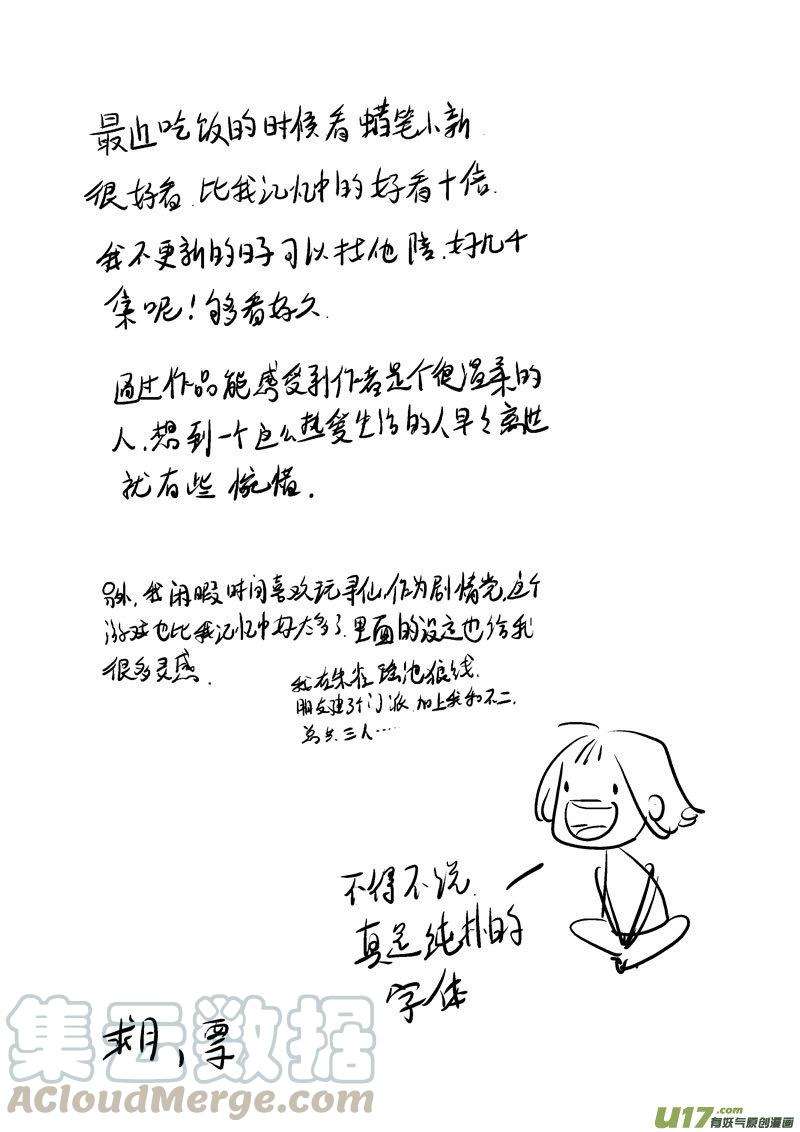 U17.com
有妖气原创漫画
最近吃饭的时候看蜡笔小新
很好看.比我记忆中的好看十倍.
我不更新的日子可以找他陪.好几千
集呢!够看好久.
通过作品能感受到作者是个很温柔的
人.想到一个这么热爱生活的人早早离世
就有些惋惜.
另外,我闲暇时间喜欢玩寻仙,作为剧情党,这个
游戏也比我记忆中好太多了.里面的设定也给我
很多灵感.
我在朱雀瑶池狼线.
朋友建了个门派.加上我和不二.
总共三人……
不得不说.
真是纯朴的
字体
求月,票
集云数据
ACloudMerge.com